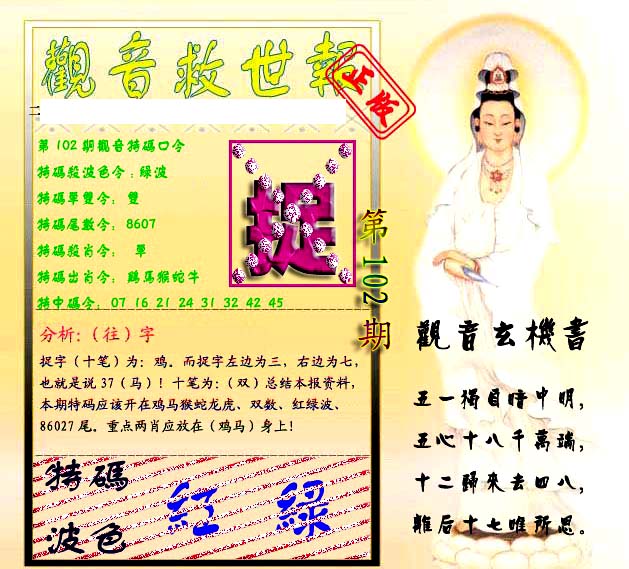 觀音救世報
正版
第102期觀音特碼口令
特碼殺波色令：綠波
特碼單雙令： 雙
特碼尾數令： 8607
特碼殺肖令： 單
特碼出肖令： 鷄馬猴蛇牛
特中碼令： 07 16 21 24 31 32 42 45
捉
第102期
分析:（往）字
捉字（十笔）为：鸡。而捉字左边为三，右边为七，
也就是说37（马）！十笔为：（双）总结本报资料，
本期特码应该开在鸡马猴蛇龙虎、双数、红绿波、
86027尾。重点两肖应放在（鸡马）身上！
特碼
波色
紅 綠
觀音玄機書
五一獨目暗中明，
五心十八千萬瑞，
十二歸來去四八，
離后十七唯所恩。